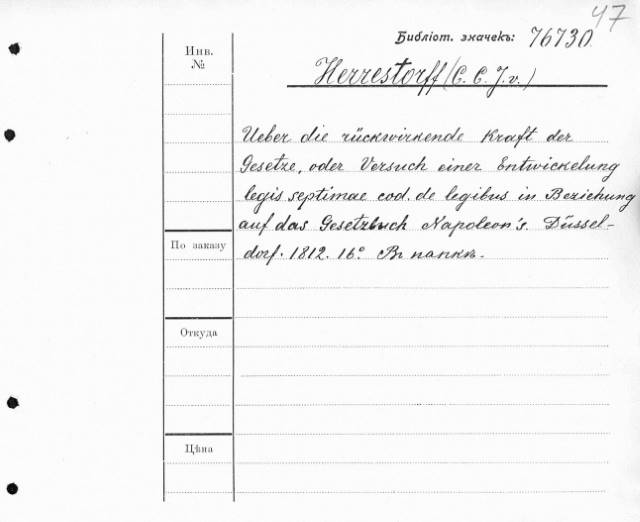 47
Библіот. значекъ: 76730
Инв.
№
Herrestorff (C. C. J. v.)
Ueber die rückwirkende Kraft der
Gesetze, oder Versuch einer Entwickelung
legis septimae cod. de legibus in Beziehung
auf das Gesetzbuch Napoleon's. Düssel-
По заказу
dorf. 1812. 16° Въ папкѣ.
Откуда
Цѣна